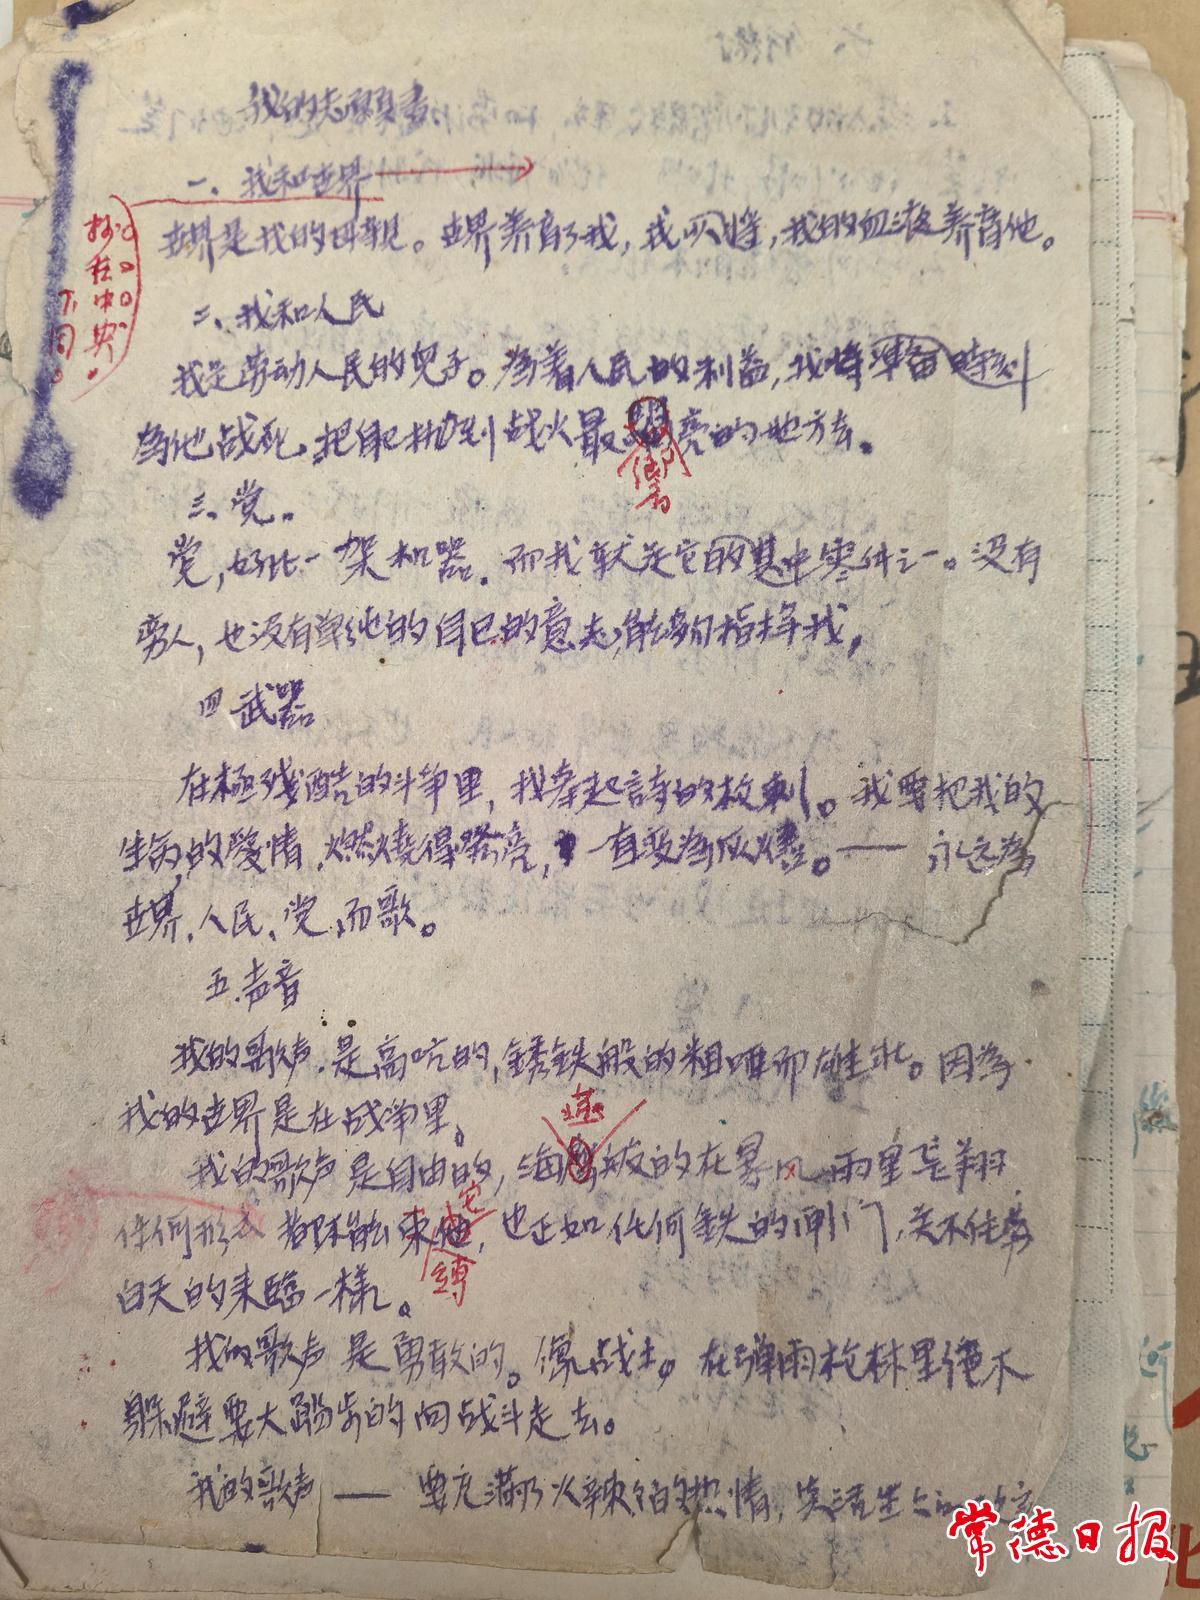 我的志愿書
一、我和世界
世界是我的母親。世界养育了我，我必将，我的血液养育他。
抄在中央。
下同。
二、我和人民
我是劳动人民的兒子。為着人民的利益，我将准备时刻
為他战死，把自己投到战火最亮的地方去。
三、党。
党，好比一架机器。而我就是它的其中零件之一。没有
旁人，也没有单纯的自己的意志，能够指挥我，
四 武器
在極残酷的斗争里，我举起詩的枪刺。我要把我的
生命的愛情，燃燒得嘹亮，一直变為灰燼。—— 永远為
世界、人民、党而歌。
五.声音
我的歌声.是高吭的，锈鉄般的粗唯而雄壮。因為
我的世界是在战争里。
我的歌声是自由的，海燕般的在暴风雨里飞翔
任何形式都不能束它缚，也正如任何鉄的闸门，关不住
白天的来臨一樣。
我的歌声是勇敢的。像战士。在弹雨枪林里绝不
躲避要大踏步的向战斗走去。
我的歌声——要充满了火辣辣的热情，
常德日报